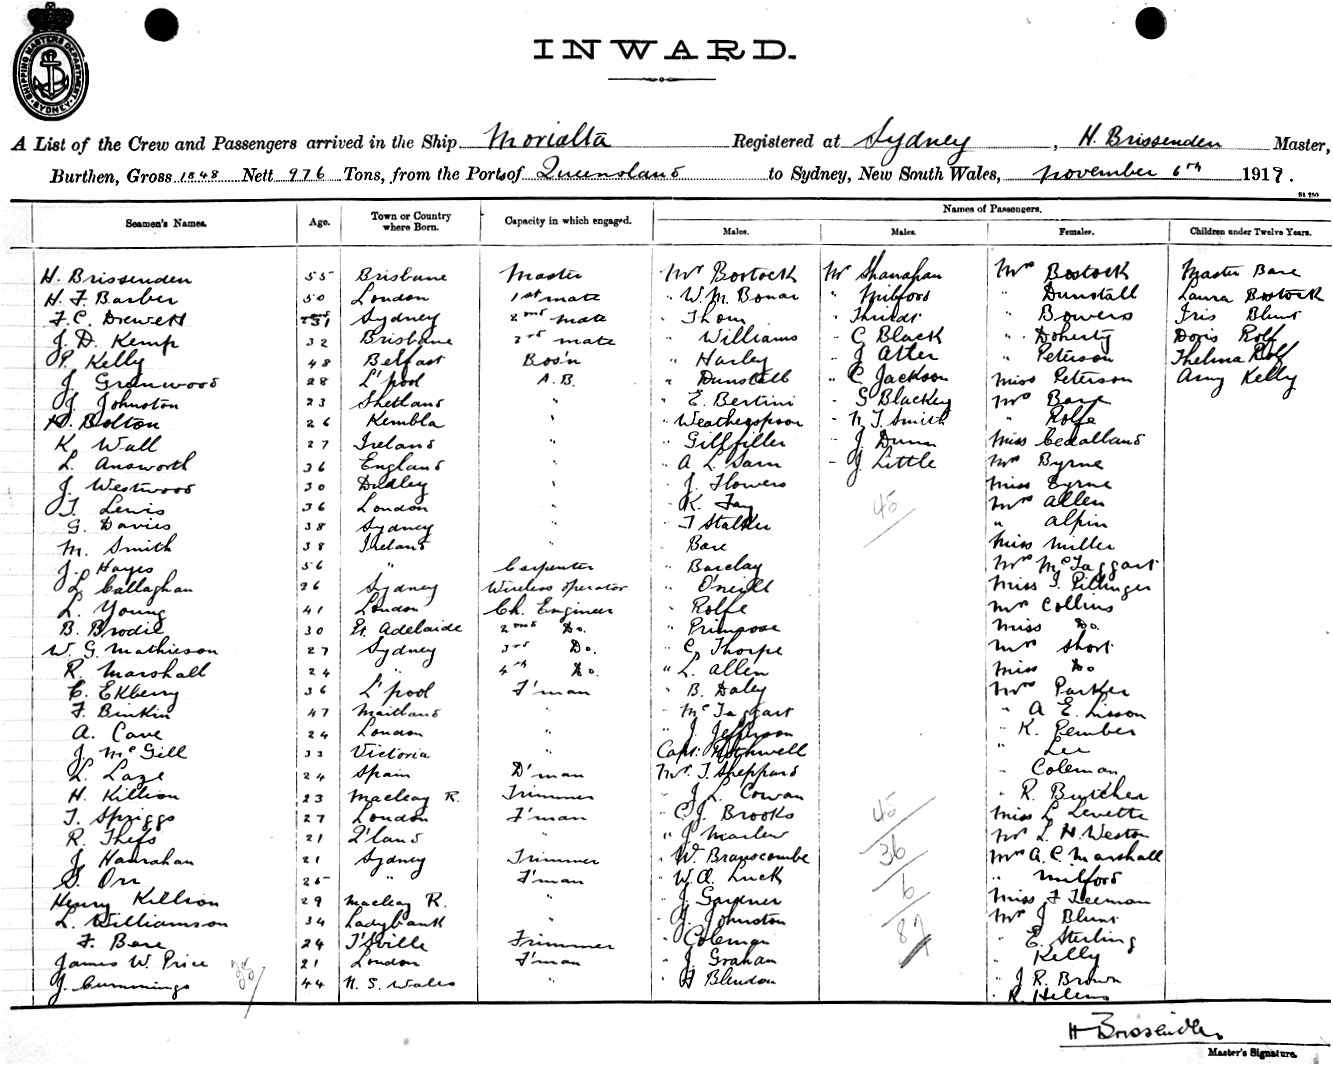 SHIPPING MASTERS DEPARTMENT SYDNEY
INWARD.
A List of the Crew and Passengers arrived in the Ship Morialta Registered at Sydney, H. Brissenden Master,
Burthen, Gross 1848 Nett 976 Tons, from the Port of Queensland to Sydney, New South Wales, November 6th 1917.
Seamen's Names. Age. Town or Country where Born. Capacity in which engaged. Names of Passengers.
Males. Males. Females. Children under Twelve Years.
H. Brissenden 55 Brisbane Master Mr Bostock Mr Shanahan Mrs Bostock Master Bare
H. F. Barber 50 London 1st mate " W. M. Bonar " Milford " Dunstall Laura Bostock
F. C. Drewett 31 Sydney 2nd mate " Thom " " Bowers Iris Blunt
J. D. Kemp 32 Brisbane 3rd mate " Williams " C Black " Doherty Doris Rolf
P. Kelly 48 Belfast Bos'n " Harley " J Atter " Peterson Thelma Rolf
J. Greenwood 28 L'pool A.B. " Dunstall " C Jackson Miss Peterson Amy Kelly
J. Johnston 23 Shetland " " E. Bertini " S Blackey Mrs Bare
H. Bolton 26 Kembla " " Weatherspoon " N. T. Smith " Rolfe
K. Wall 27 Ireland " " Gillfiller " J Dunn Miss Cedalland
L. Answorth 36 England " " A L Sarn " J Little Mrs Byrne
J. Westwood 30 Dudley " " J. Flowers Miss Byrne
T. Lewis 36 London " " K. Fay 45 Mrs Allen
G. Davies 38 Sydney " " T Stalker " Alpin
M. Smith 38 Ireland " " Bare Miss Miller
J. Hayes 56 " Carpenter " Barclay Mrs McTaggart
L. Callaghan 26 Sydney Wireless operator " O'neill Miss I. Pillinger
L. Young 41 London Ch. Engineer " Rolfe Mrs Collins
B. Brodie 30 Pt. Adelaide 2nd Do. " Primpose Miss Do.
W. G. Mathieson 27 Sydney 3rd Do. " C. Thorpe Mrs Short
R. Marshall 24 " 4th Do. " L. Allen Miss Do
C. Ekberry 36 L'pool F'man " B. Daley Mrs Parker
F. Binkin 47 Maitland " " McTaggart " A E. Lisson
A. Cave 24 London " " J. Jefferson " K. Pember
J. McGill 33 Victoria " Capt. Rothwell " Lee
L. Laze 24 Spain D'man Mr. T. Sheppard " Coleman
H. Killion 23 Macleay R. Trimmer " J. L. Cowan " R. Butcher
T. Spriggs 27 London F'man " C. J. Brooks 45 Miss L Levette
R. 21 Q'land " " J Marlew Mrs L. H. Weston
J. Hanrahan 21 Sydney Trimmer " W. Branscombe 36 Mrs A. C. Marshall
S. Orr 25 " F'man " W. A. Luck 6 " Milford
Henry Killion 29 Macleay R. " " J. Gardner Miss F Teeman
L. Williamson 34 Ladybank " " J. Johnston 87 Mrs J Blunt
F. Bare 24 T'Sville Trimmer " Coleman " E. Sterling
James W. Price 21 London F'man " J. Graham " Kelly
J. Cummings 44 N. S. Wales " " H Blendon " J R. Brown
" R. Helens
H Brissenden
Master's Signature.